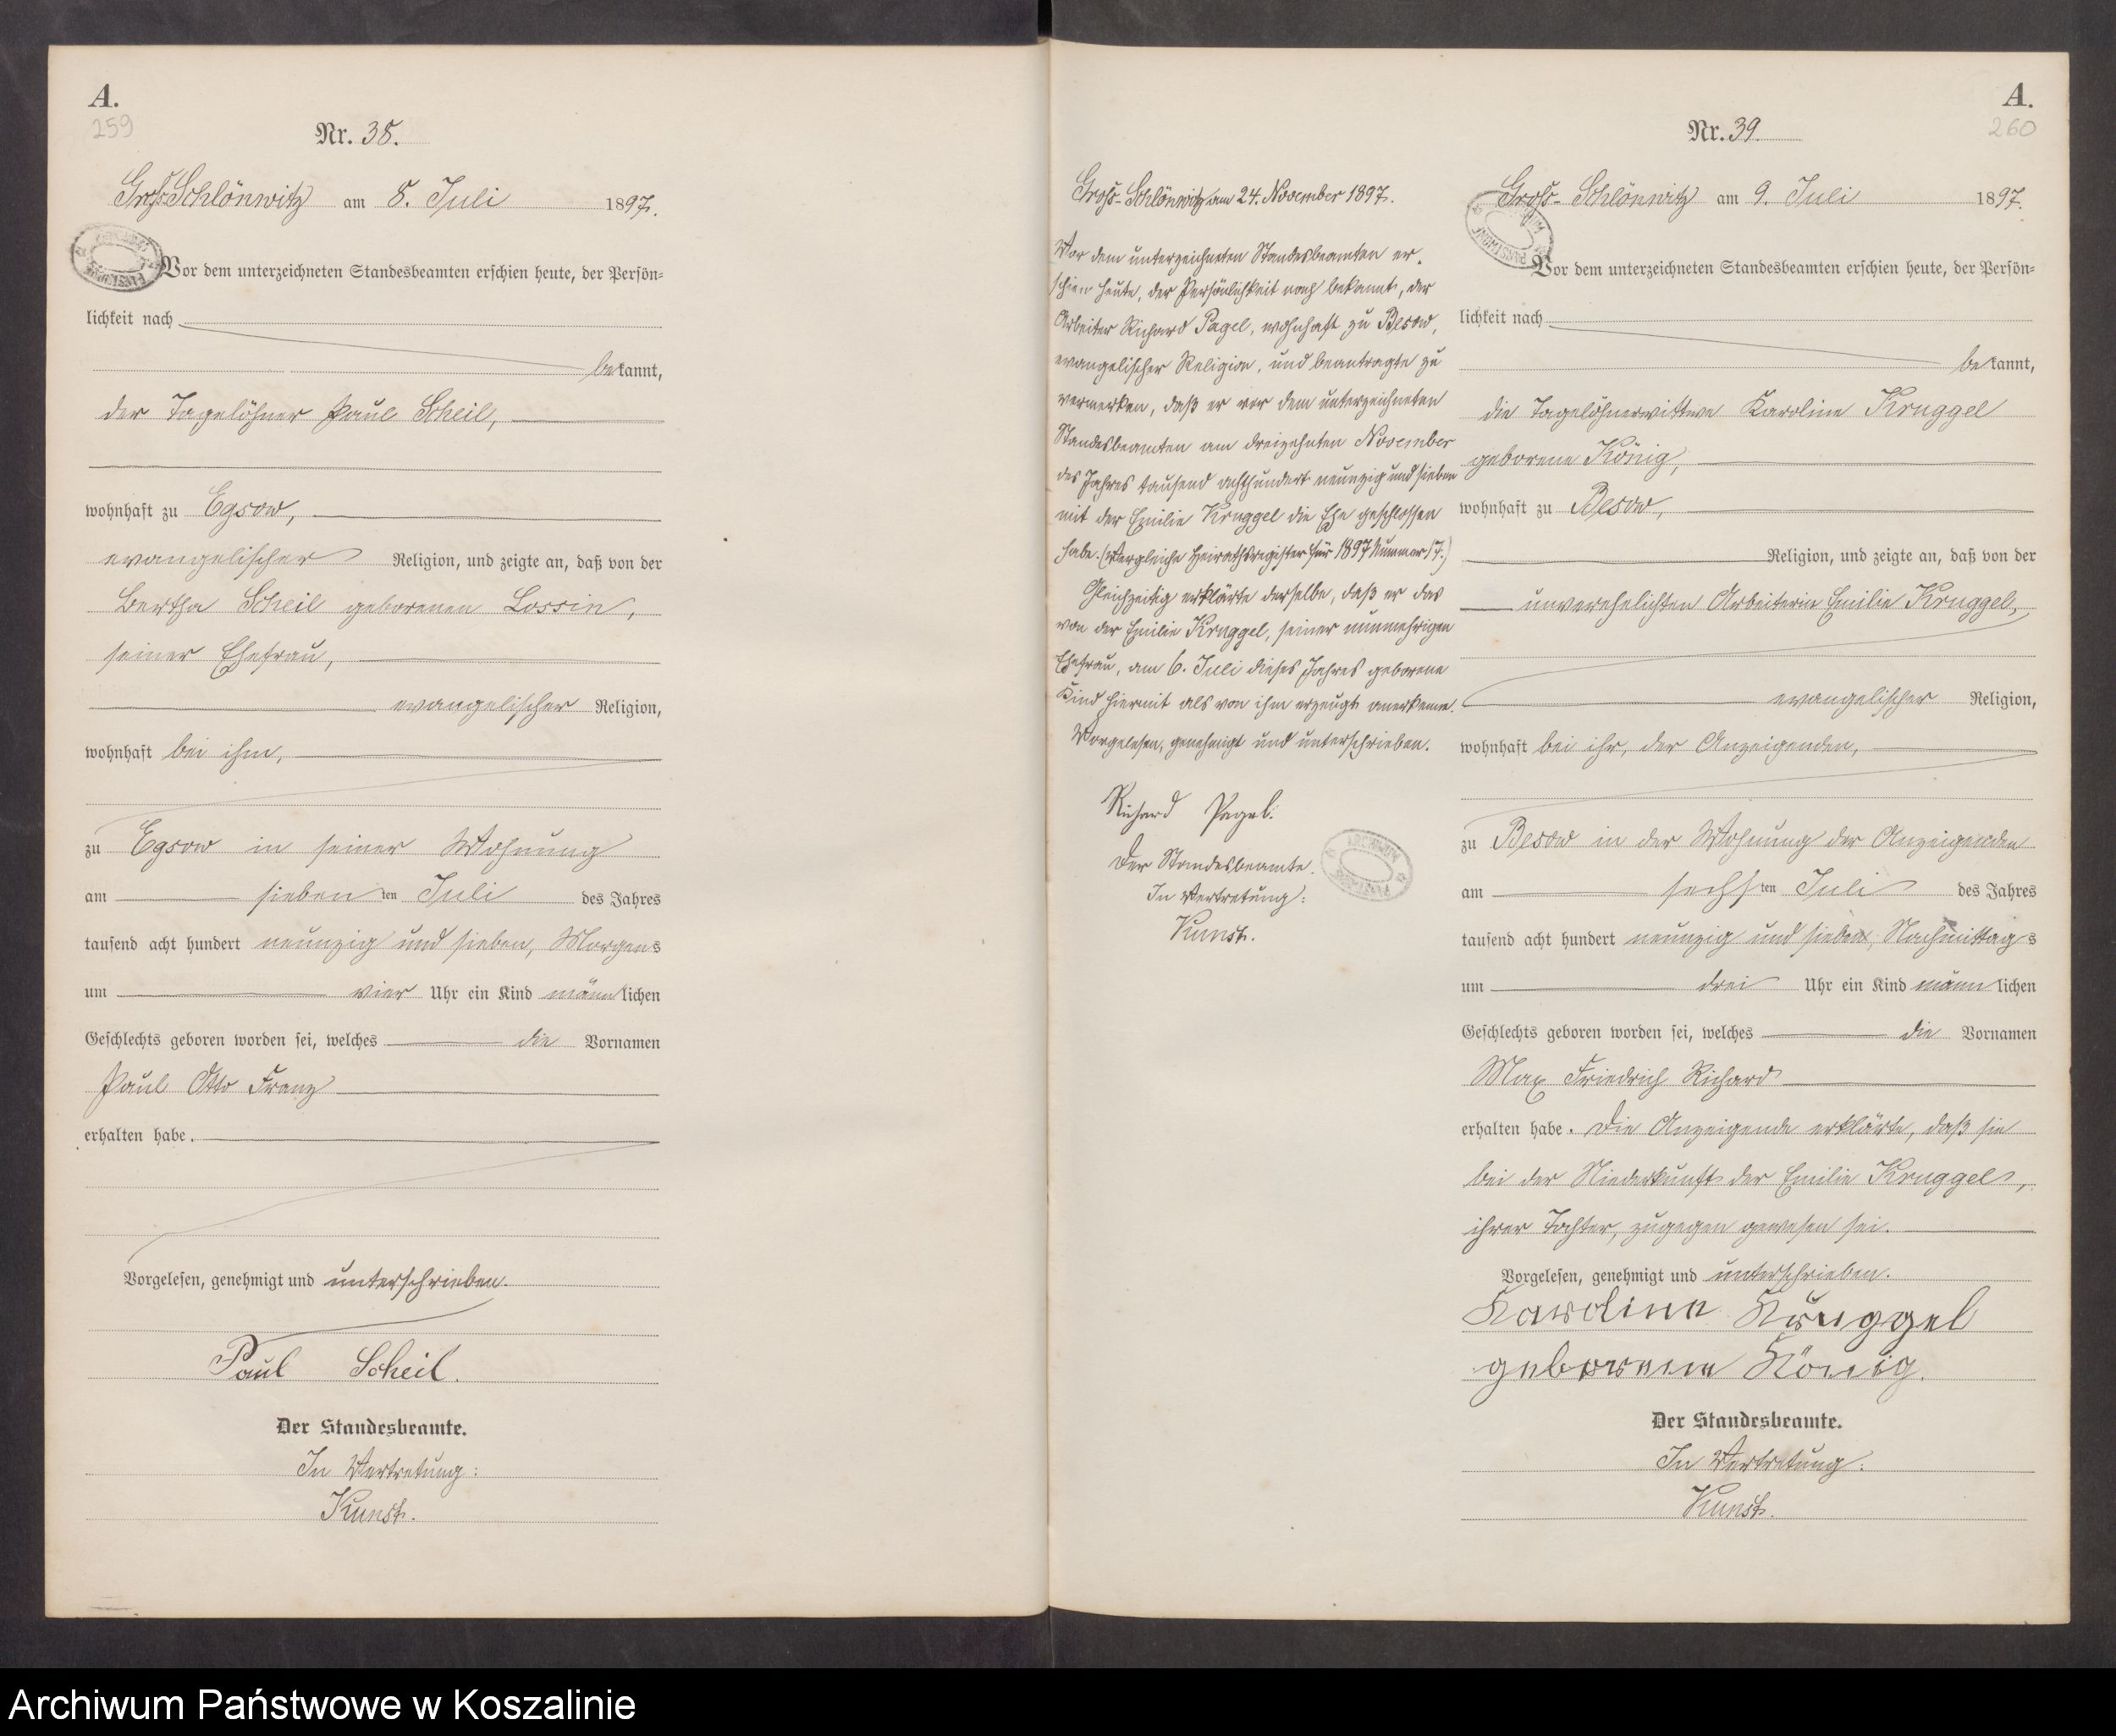 A.
259
Nr. 38.
Groß Schlönwitz am 8. Juli 1897.
Vor dem unterzeichneten Standesbeamten erschien heute, der Persön=
lichkeit nach
bekannt,
der Tagelöhner Paul Scheil,
wohnhaft zu Egsow,
evangelischer Religion, und zeigte an, daß von der
Bertha Scheil geborenen Lossin,
seiner Ehefrau,
evangelischer Religion,
wohnhaft bei ihm,
zu Egsow in seiner Wohnung
am sieben ten Juli des Jahres
tausend acht hundert neunzig und sieben, Morgens
um vier Uhr ein Kind männlichen
Geschlechts geboren worden sei, welches die Vornamen
Paul Otto Franz
erhalten habe.
Vorgelesen, genehmigt und unterschrieben.
Paul Scheil.
Der Standesbeamte.
In Vertretung:
Kunst.
Groß-Schlönwitz am 24. November 1897.
Vor dem unterzeichneten Standesbeamten er-
schien heute, der Persönlichkeit nach bekannt, der
Arbeiter Richard Pagel, wohnhaft zu Besow,
evangelischer Religion, und beantragte zu
vermerken, daß er vor dem unterzeichneten
Standesbeamten am dreizehnten November
des Jahres tausend achthundert neunzig und sieben
mit der Emilie Kruggel die Ehe geschlossen
habe. (Vergleiche Heirathsregister für 1897 Nummer 17.)
Gleichzeitig erklärte derselbe, daß er das
von der Emilie Kruggel, seiner nunmehrigen
Ehefrau, am 6. Juli dieses Jahres geborene
Kind hiermit als von ihm erzeugt anerkenne.
Vorgelesen, genehmigt und unterschrieben.
Richard Pagel.
Der Standesbeamte.
In Vertretung:
Kunst.
A.
260
Nr. 39.
Groß-Schlönwitz am 9. Juli 1897.
Vor dem unterzeichneten Standesbeamten erschien heute, der Persön=
lichkeit nach
bekannt,
die Tagelöhnerwittwe Karoline Kruggel
geborene König,
wohnhaft zu Besow,
Religion, und zeigte an, daß von der
unverehelichten Arbeiterin Emilie Kruggel,
evangelischer Religion,
wohnhaft bei ihr, der Anzeigenden,
zu Besow in der Wohnung der Anzeigenden
am sechs ten Juli des Jahres
tausend acht hundert neunzig und sieben, Nachmittags
um drei Uhr ein Kind männlichen
Geschlechts geboren worden sei, welches die Vornamen
Max Friedrich Richard
erhalten habe. Die Anzeigende erklärte, daß sie
bei der Niederkunft der Emilie Kruggel,
ihrer Tochter, zugegen gewesen sei.
Vorgelesen, genehmigt und unterschrieben.
Karoline Kruggel
geborene König.
Der Standesbeamte.
In Vertretung:
Kunst.
Archiwum Państwowe w Koszalinie